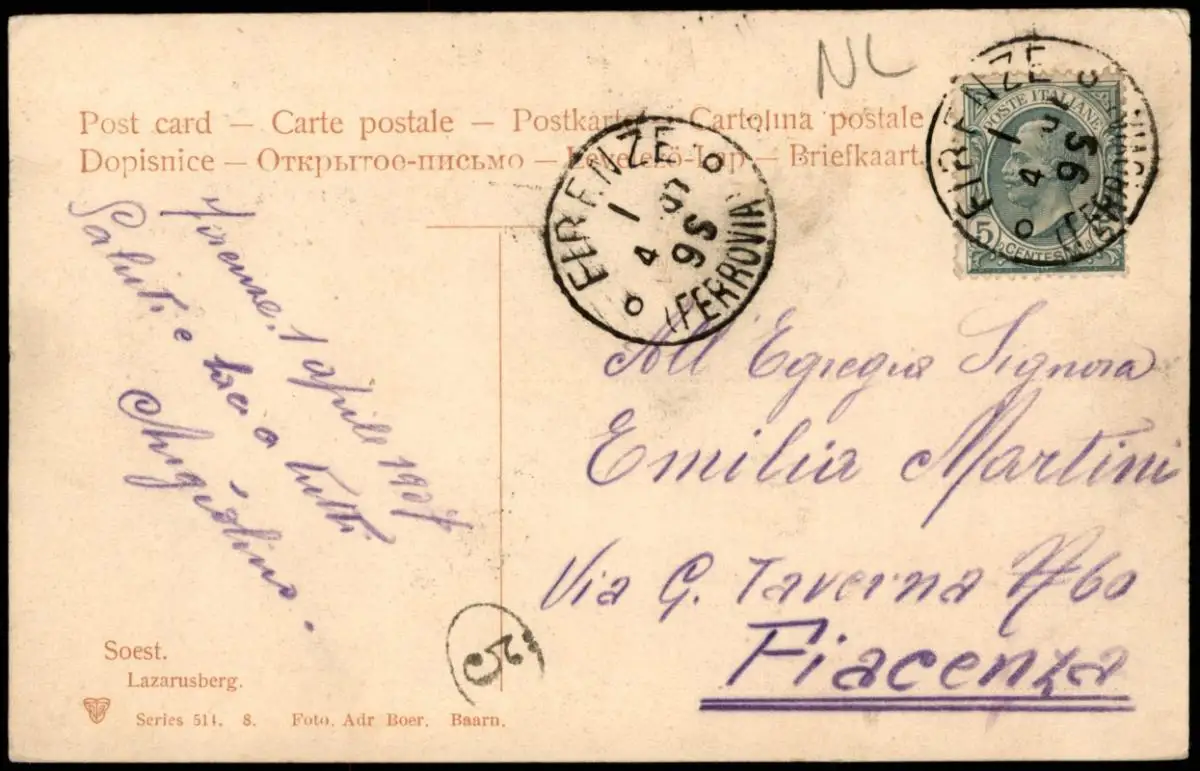 NL
Post card — Carte postale — Postkarte — Cartolina postale
Dopisnice — Открытое-письмо — Levelező-Lap — Briefkaart.
FIRENZE
(FERROVIA)
1
4
9S
FIRENZE
(FERROVIA)
1
4
9S
POSTE ITALIANE
5 CENTESIMI 5
Firenze. 1 aprile 1907
Saluti e baci a tutti
Angiolino.
All' Egregia Signora
Emilia Martini
Via G. Taverna N° 60
Piacenza
25
Soest.
Lazarusberg.
Series 511. 8. Foto. Adr Boer. Baarn.